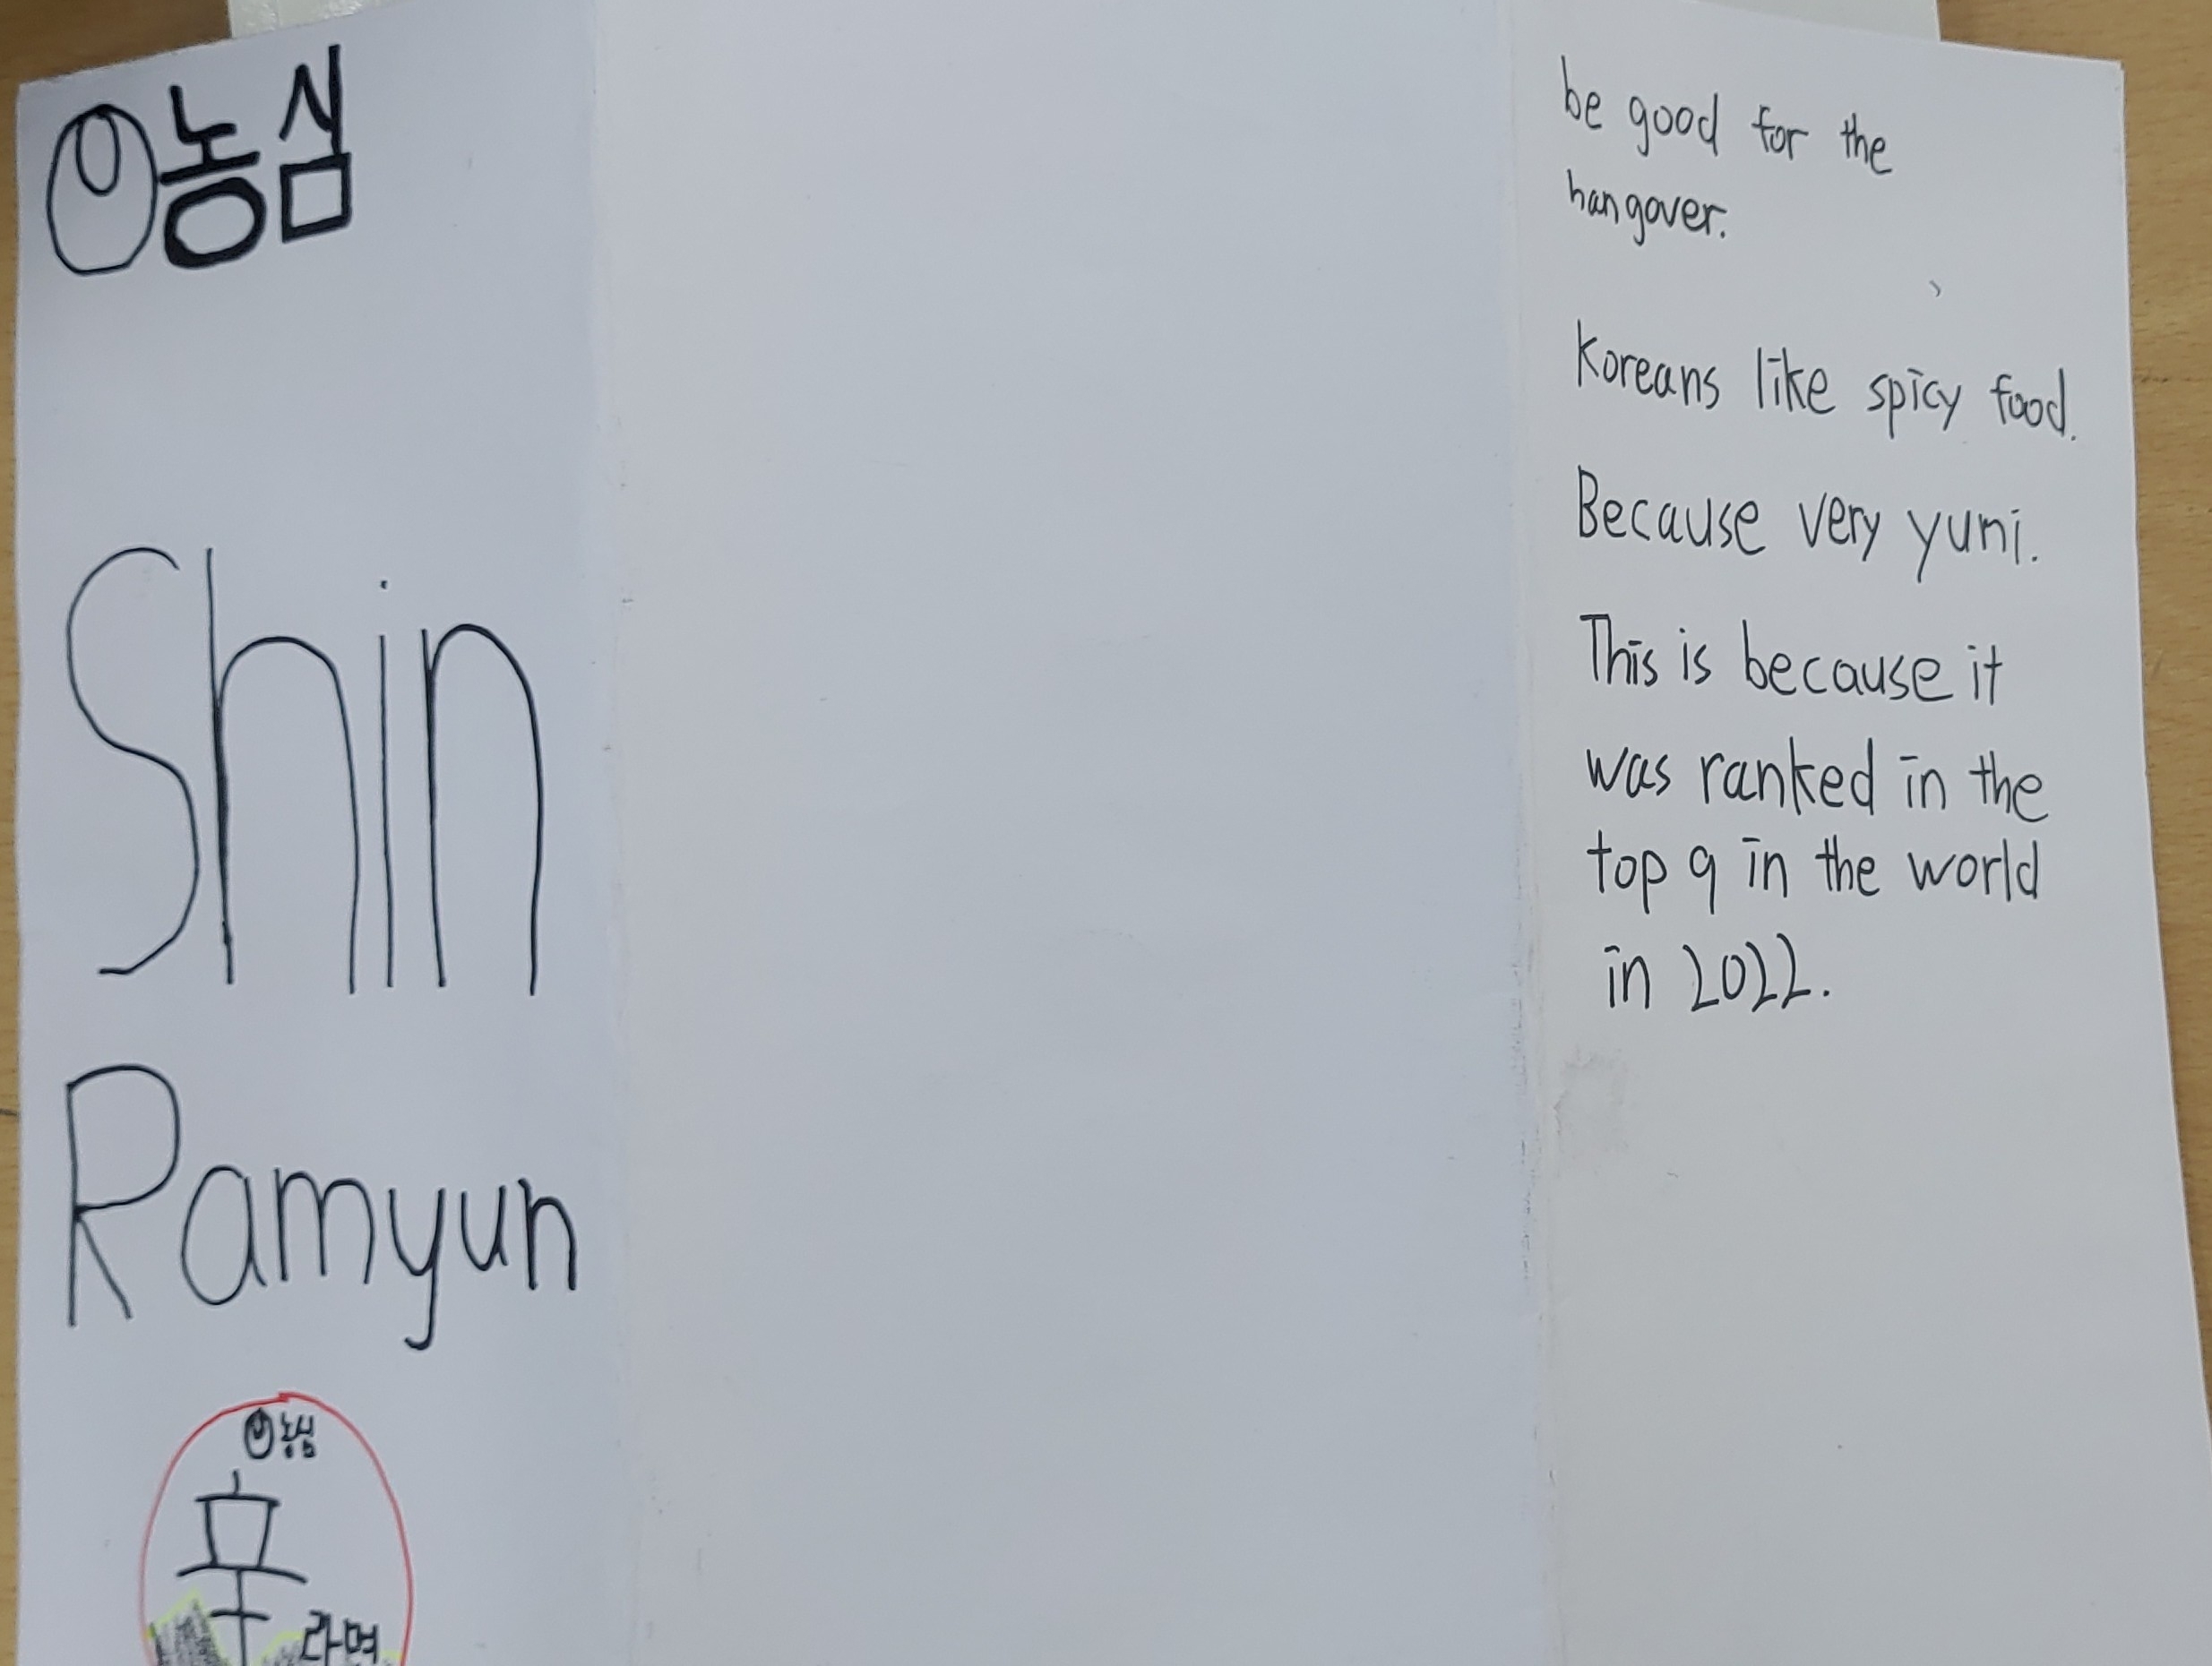 농심
Shin
Ramyun
농심
라면
be good for the
hangover.
Koreans like spicy food.
Because very yumi.
This is because it
was ranked in the
top 9 in the world
in 2022.